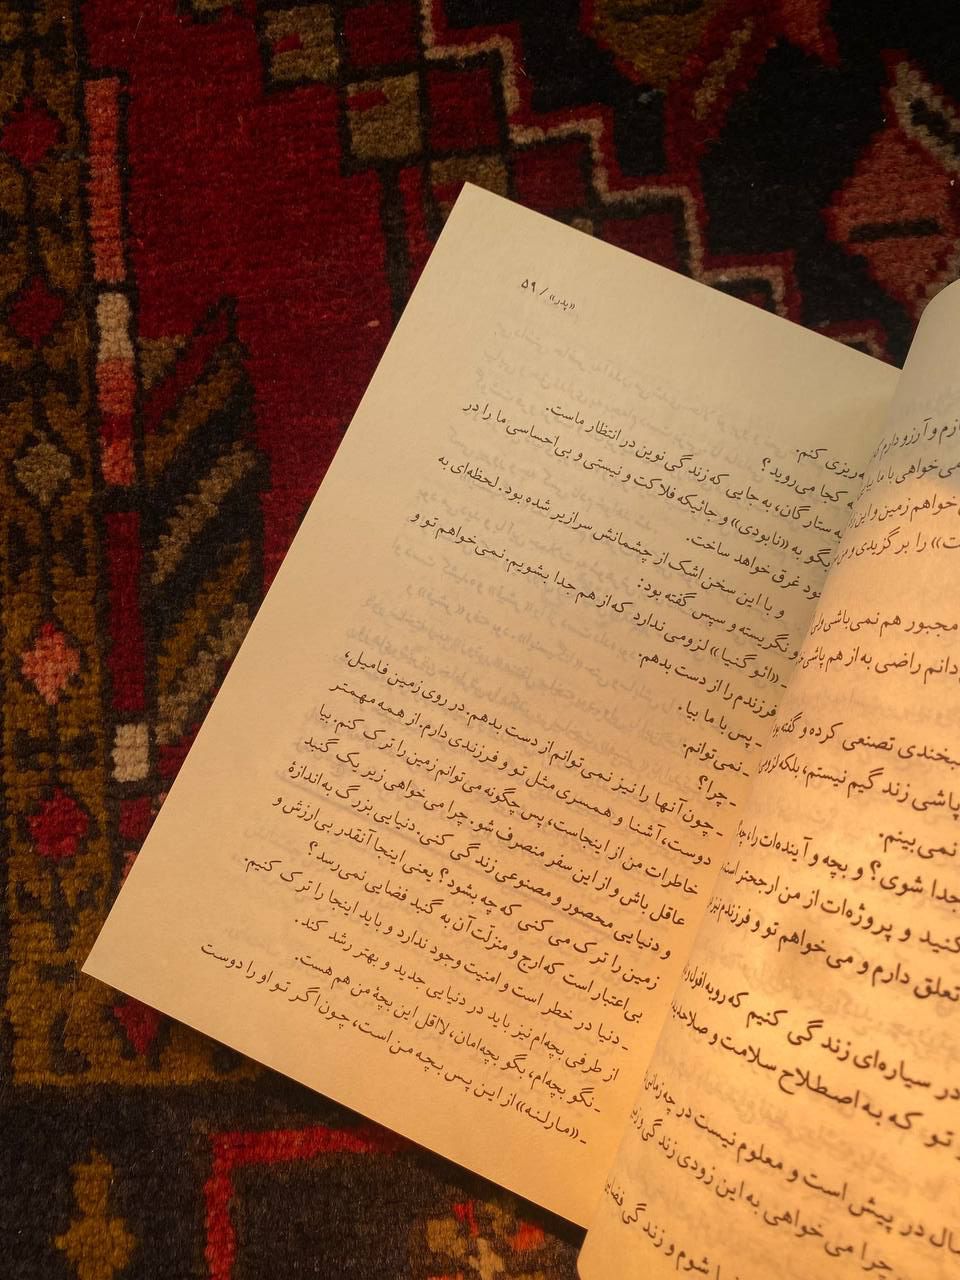 «پدر» / ۵۹
ریزی کنم.
کجا می‌روید؟
ستارگان، به جایی که زندگی نوین در انتظار ماست.
بگو به «نابودی» و جائیکه فلاکت و نیستی و بی‌احساسی ما را در
خود غرق خواهد ساخت.
و با این سخن اشک از چشمانش سرازیر شده بود. لحظه‌ای به
او نگریسته و سپس گفته بود:
- «ائوگنیا» لزومی ندارد که از هم جدا بشویم. نمی‌خواهم تو و
فرزندم را از دست بدهم.
- پس با ما بیا.
- نمی‌توانم.
- چرا؟
- چون آنها را نیز نمی‌توانم از دست بدهم. در روی زمین فامیل،
دوست، آشنا و همسری مثل تو و فرزندی دارم. از همه مهمتر
خاطرات من از اینجاست، پس چگونه می‌توانم زمین را ترک کنم. بیا
عاقل باش و از این سفر منصرف شو. چرا می‌خواهی زیر یک گنبد
و دنیایی محصور و مصنوعی زندگی کنی. دنیایی بزرگ به اندازهٔ
زمین را ترک می‌کنی که چه بشود؟ یعنی اینجا آنقدر بی‌ارزش و
بی‌اعتبار است که ارج و منزلت آن به گنبد فضایی نمی‌رسد؟
- دنیا در خطر است و امنیت وجود ندارد و باید اینجا را ترک کنیم.
از طرفی بچه‌ام نیز باید در دنیایی جدید و بهتر رشد کند.
- نگو بچه‌ام، بگو بچه‌امان، لااقل این بچهٔ من هم هست.
- «مارلنه» از این پس بچه من است، چون اگر تو او را دوست
و آرزو دارم
می‌خواهی با ما
خواهم زمین و این
را برگزیدی و
مجبور هم نمی‌باشی ولی
دانم راضی به از هم پاشی
تصنعی کرده و گفته بود
پاشی زندگیم نیستم، بلکه
نمی‌بینم.
جدا شوی؟ و بچه و آینده‌ات را،
کنید و پروژه‌ات از من ارجحتر
تعلق دارم و می‌خواهم تو و فرزندم
در سیاره‌ای زندگی کنیم که رو به افول
تو که به اصطلاح سلامت و صلاح
در پیش است و معلوم نیست در چه زمانی
چرا می‌خواهی به این زودی زندگی
شوم و زندگی